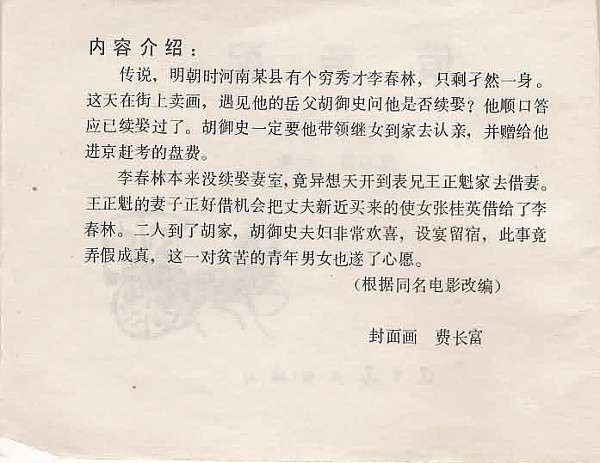 内容介绍：
传说，明朝时河南某县有个穷秀才李春林，只剩孑然一身。
这天在街上卖画，遇见他的岳父胡御史问他是否续娶？他顺口答
应已续娶过了。胡御史一定要他带领继女到家去认亲，并赠给他
进京赶考的盘费。
李春林本来没续娶妻室，竟异想天开到表兄王正魁家去借妻。
王正魁的妻子正好借机会把丈夫新近买来的使女张桂英借给了李
春林。二人到了胡家，胡御史夫妇非常欢喜，设宴留宿，此事竟
弄假成真，这一对贫苦的青年男女也遂了心愿。
（根据同名电影改编）
封面画 费长富